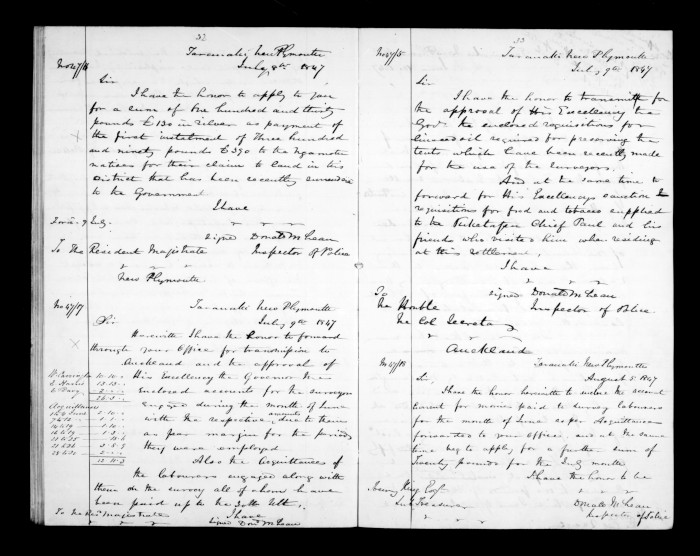 32
Taranaki New Plymouth
No 47/16 July 8th 1847
Sir
I have the honor to apply to you
for a sum of One hundred and thirty
pounds £130 in silver as payment of
the first instalment of Three hundred
and ninety pounds £390 to the Nga
natives for their claim to land in this
District that has been recently
to the Government
I have
9 July
signed Donald McLean
To The Resident Magistrate Inspector of Police
New Plymouth
No 47/17 Taranaki New Plymouth
July 9th 1847
Sir
Herewith I have the honor to forward
through your Office for transmission to
Auckland and the approval of
His Excellency the Governor the
enclosed accounts for the surveyors
engaged during the month of June
with the respective amounts due to them
as per margin for the periods
they were employed.
Also the acquittances of
the labourers engaged along with
them on the survey all of whom have
been paid up to the 30th
I have
To the Magistrate signed Don McLean
Acquittances
33
No 47/15 Taranaki New Plymouth
July 9th 1847
Sir
I have the honor to transmit for
the approval of His Excellency the
Govr the enclosed requisitions for
linseed oil required for preserving the
tents which have been recently made
for the use of the surveyors.
And at the same time to
forward for His Excellencys sanction
requisitions for food and tobacco supplied
to the Chief Paul and his
friends who visited him when residing
at this settlement.
I have
To signed Donald McLean
The Honble Inspector of Police
The Col Secretary
Auckland
No 47/18 Taranaki New Plymouth
August 5 1847
Sir,
I have the honor herewith to enclose the second
account for monies paid to survey labourers
for the month of June as per Acquittances
forwarded to your Office, and at the same
time beg to apply for a further sum of
Twenty pounds for the July month
I have the honor to be
King Esqr
Sub Treasurer Donald McLean
Inspector of Police